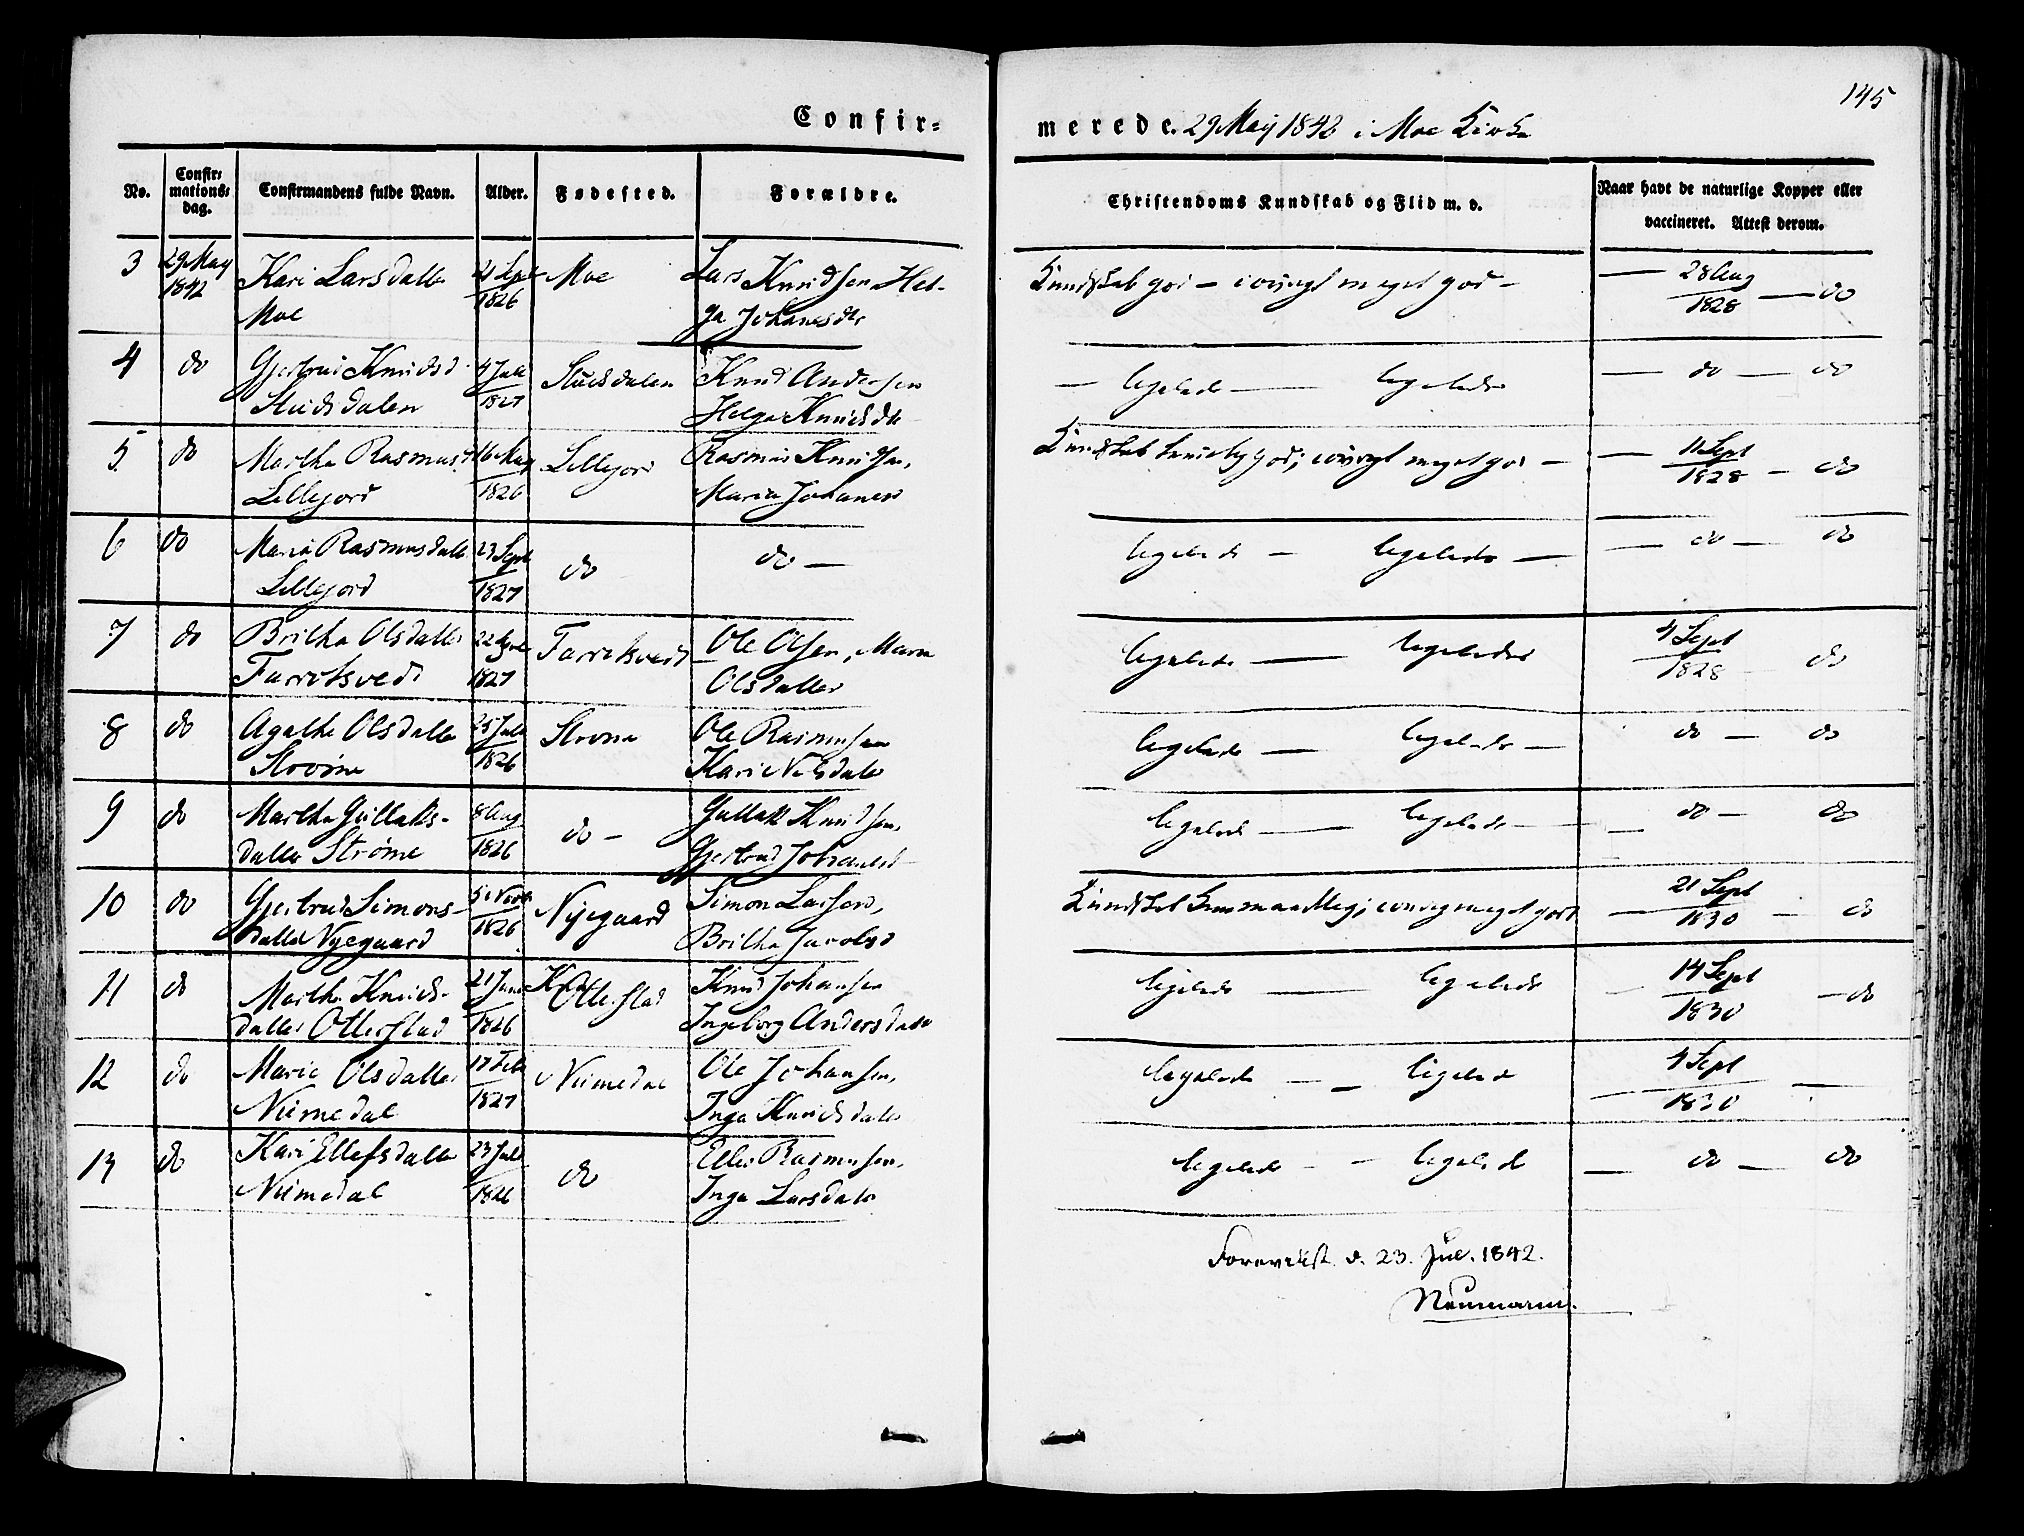 145
Confir-
merede. 29 May 1842 i Moe Kirke
No.
Confir-
mations-
dag.
Confirmandens fulde Navn.
Alder.
Fødested.
Forældre.
Christendoms Kundskab og Flid m. v.
Naar havt de naturlige Kopper eller
vaccineret. Attest derom.
3 29 May 1842 Kari Larsdatter Moe 1826 Moe Lars Knudsen Hel-
ga Johanesdtr Kundskab god - meget god - 28 Aug 1828 - do
4 do Gjertrud Knudsd Studsdalen 4 Juli 1827 Knud Andersen
Helga Knudsdtr - ligeledes - ligeledes - do - do
5 do Martha Rasmusd Lillejord 16 May 1826 Lillejord Rasmus Knudsen,
Maria Johanesd Kundskab god; meget god - 11 Sept 1828 - do
6 do Maria Rasmusdatter Lillejord 23 Sept 1827 do do -
ligeledes - ligeledes - do - do
7 do Britha Olsdatter Farretsvedt 22 1827 Farretsvedt Ole Olsen, Maria
Olsdatter ligeledes - ligeledes 4 Sept 1828 - do
8 do Agatha Olsdatter Strøme 25 Juli 1826 Strøme Ole Rasmusen
Kari Nilsdatter ligeledes - ligeledes - do - do
9 do Martha Gullaks-
datter Strøme 8 Aug 1826 do - Gullak Knudsen,
Gjertrud Johanesd ligeledes - ligeledes - do - do
10 do Gjertrud Simons-
datter Nyegaard 1826 Nyegaard Simon Larsen,
Britha Jacobsd Kundskab meget god 21 Sept 1830 - do
11 do Martha Knuds-
datter Otterstad 21 1826 Otterstad Knud Johansen
Ingeborg Andersdatr ligeledes - ligeledes 14 Sept 1830 - do
12 do Marie Olsdatter Niimedal 17 Feb 1827 Niimedal Ole Johansen,
Inga Knudsdatter ligeledes - ligeledes 4 Sept 1830 -
13 do Kari Ellefsdatter Niimedal 23 Juli 1826 do Ellef Rasmusen,
Inga Larsdatter ligeledes - ligeledes - do - do
Foreviist d. 23. Jul. 1842.
Neumann.